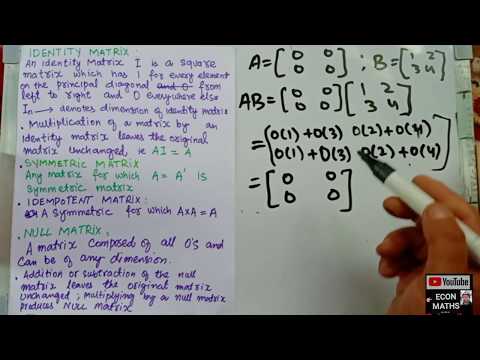 IDENTITY MATRIX:
An Identity Matrix I is a square
matrix which has 1 for every element
on the principal diagonal and 0 from
left to right and 0 everywhere else
In → denotes dimension of identity matrix
• Multiplication of a matrix by an
Identity matrix leaves the original
matrix unchanged, ie AI = A
• SYMMETRIC MATRIX
Any matrix for which A = A' is
symmetric matrix
• IDEMPOTENT MATRIX:
A Symmetric for which A×A = A
NULL MATRIX:
A matrix composed of all 0's and
Can be of any dimension.
• Addition or subtraction of the null
matrix leaves the original matrix
unchanged; Multiplying by a null matrix
produces NULL Matrix
A = [0 0
0 0] ; B = [1 2
3 4]
AB = [0 0
0 0] [1 2
3 4]
= [0(1) + 0(3) 0(2) + 0(4)
0(1) + 0(3) 0(2) + 0(4)]
= [0 0
0 0]
YouTube
ECON
MATHS